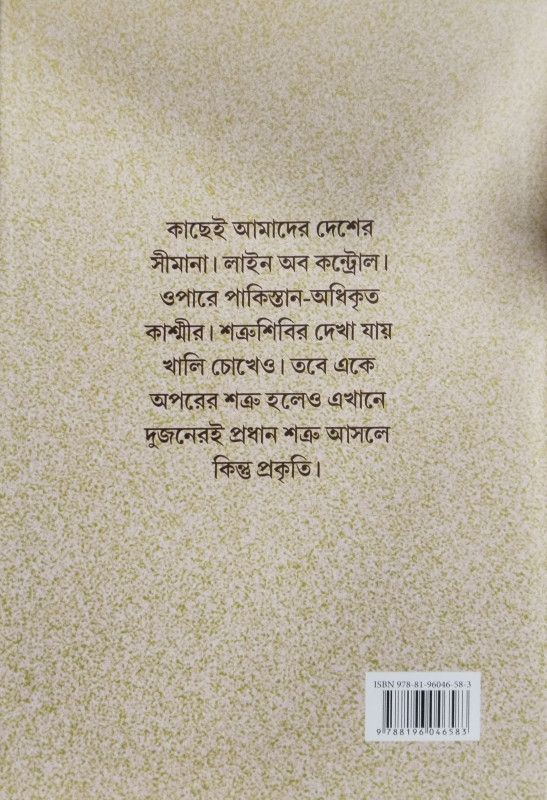 কাছেই আমাদের দেশের
সীমানা। লাইন অব কন্ট্রোল।
ওপারে পাকিস্তান-অধিকৃত
কাশ্মীর। শত্রুশিবির দেখা যায়
খালি চোখেও। তবে একে
অপরের শত্রু হলেও এখানে
দুজনেরই প্রধান শত্রু আসলে
কিন্তু প্রকৃতি।
ISBN 978-81-96046-58-3
9 788196 046583